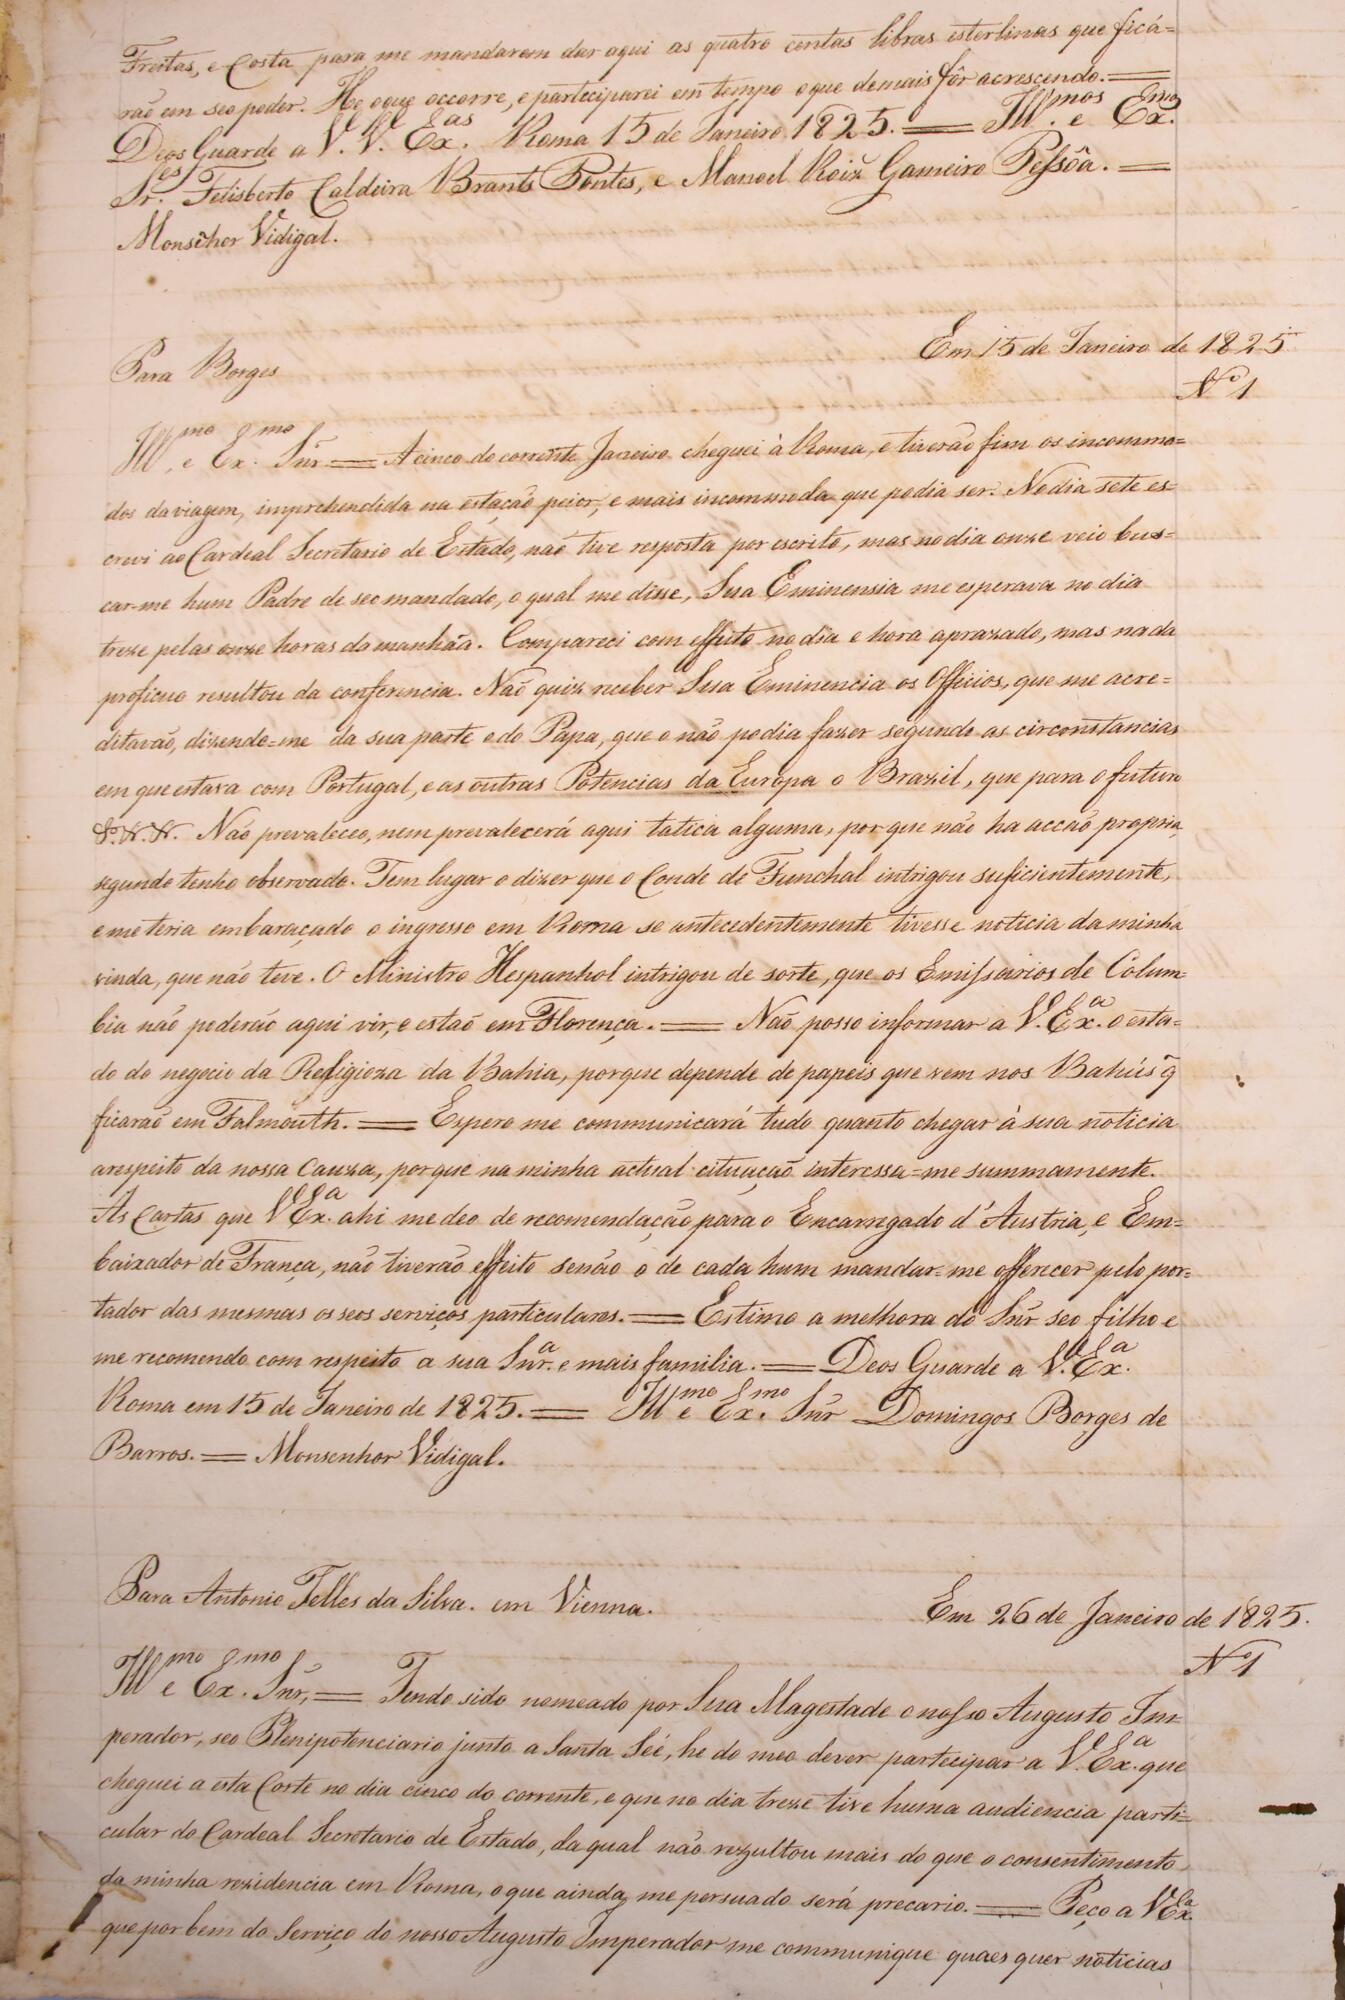 Freitas, e Costa para me mandarem dar aqui as quatro centas libras esterlinas que ficá=
raõ em seo poder. He o que occorre, e parteciparei em tempo o que demais fôr acrescendo. =
Deos Guarde a V. V. Ex.as Roma 15 de Janeiro 1825. = Ill.mos e Ex.mos
Sr.es Felisberto Caldeira Brants Pontes, e Manoel Roiz Gameiro Pessôa. =
Monsẽhor Vidigal.
Em 15 de Janeiro de 1825
Para Borges
Nº 1
Ill.mo e Ex.mo Snr̃ = A cinco do corrente Janeiro cheguei à Roma, e tiverão fim os incommo=
dos da viagem, imprehendida na estação peior, e mais incommoda que podia ser. No dia sete es=
crevi ao Cardeal Secretario de Estado, naõ tive resposta por escrito, mas no dia onze veio bus=
car-me hum Padre de seo mandado, o qual me disse, Sua Eminensia me esperava no dia
treze pelas onze horas da manhãa. Compareci com effeito no dia e hora aprazado, mas nada
proficuo resultou da conferencia. Naõ quiz receber Sua Eminencia os Officios, que me acre=
ditavão, dizendo=me da sua parte e do Papa, que o não podia fazer segundo as circonstancias
em que estava com Portugal, e as outras Potencias da Europa o Brazil, que para o futuro
&. &. &. Não prevaleceo, nem prevalecerá aqui tatica alguma, por que não ha accaõ propria,
segundo tenho observado. Tem lugar o dizer que o Conde de Funchal intrigou suficientemente,
e me teria embaraçado o ingresso em Roma se antecedentemente tivesse noticia da minha
vinda, que não teve. O Ministro Hespanhol intrigou de sorte, que os Emissarios de Colum=
bia não poderão aqui vir, e estaõ em Florença. = Naõ posso informar a V. Ex.a o esta=
do do negocio da Religioza da Bahia, porque depende de papeis que vem nos Bahús q̃
ficaraõ em Falmouth. = Espero me communicará tudo quanto chegar à sua noticia
arespeito da nossa Cauza, porque na minha actual cituação interessa=me summamente.
As Cartas que V. Ex.a ahi me deo de recomendação para o Encarregado d'Austria, e Em=
baixador de França, não tiverão effeito senão o de cada hum mandar=me offerecer pelo por=
tador das mesmas os seos serviços particulares. = Estimo a melhora do Snr̃ seo filho e
me recomendo com respeito a sua Snr.a e mais familia. = Deos Guarde a V. Ex.a
Roma em 15 de Janeiro de 1825. = Ill.mo e Ex.mo Snr̃ Domingos Borges de
Barros. = Monsenhor Vidigal.
Para Antonio Telles da Silva. em Vienna.
Em 26 de Janeiro de 1825.
Nº 1
Ill.mo e Ex.mo Snr̃, = Tendo sido nomeado por Sua Magestade o nosso Augusto Im=
perador, seo Plenipotenciario junto a Santa Sé, he do meo dever participar a V. Ex.a que
cheguei a esta Corte no dia cinco do corrente, e que no dia treze tive huma audiencia parti=
cular do Cardeal Secretario de Estado, da qual não rezultou mais do que o consentimento
da minha rezidencia em Roma, o que ainda me persuado será precario. = Peço a V. Ex.a
que por bem do Serviço do nosso Augusto Imperador me communique quaes quer noticias